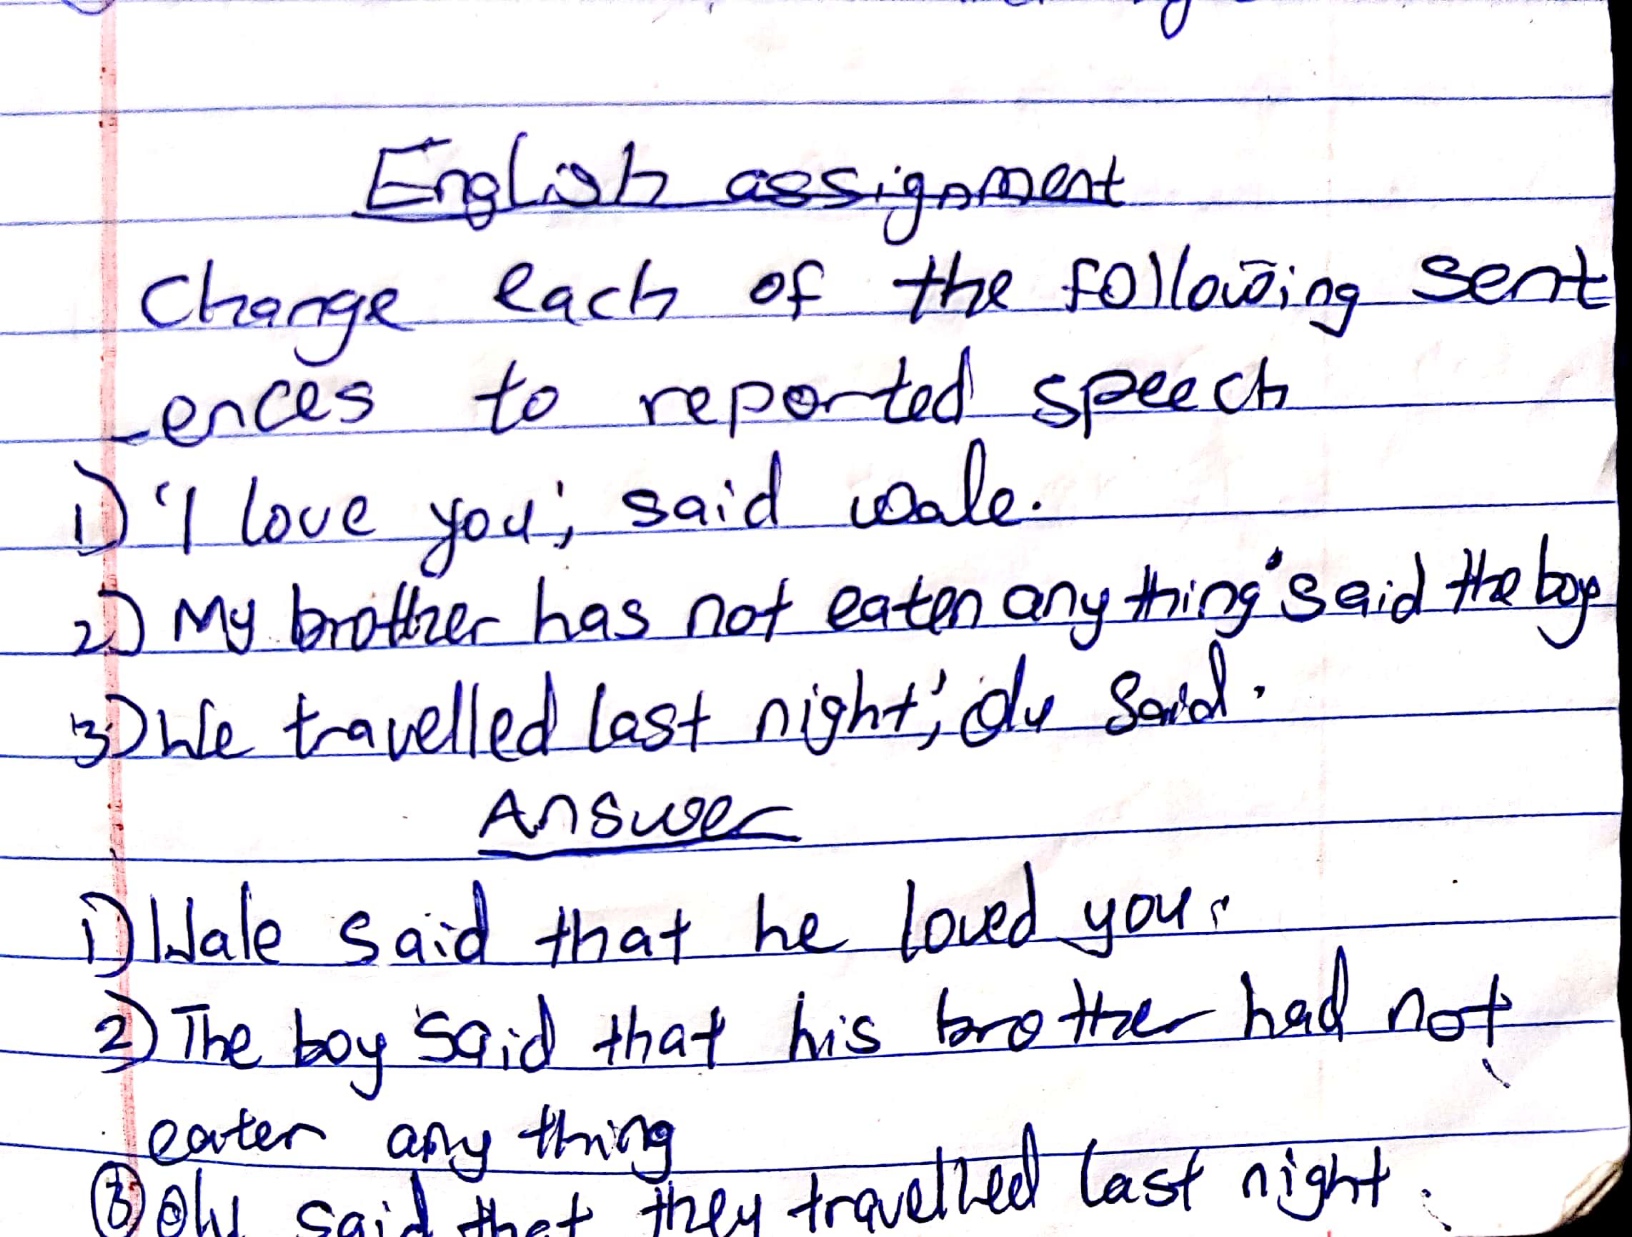 English assignment
Change each of the following sent
-ences to reported speech
1) 'I love you', said wale.
2) My brother has not eaten any thing' said the boy
3) We travelled last night', Olu said.
Answer
1) Wale said that he loved you.
2) The boy said that his brother had not
eaten any thing
3) Olu said that they travelled last night.